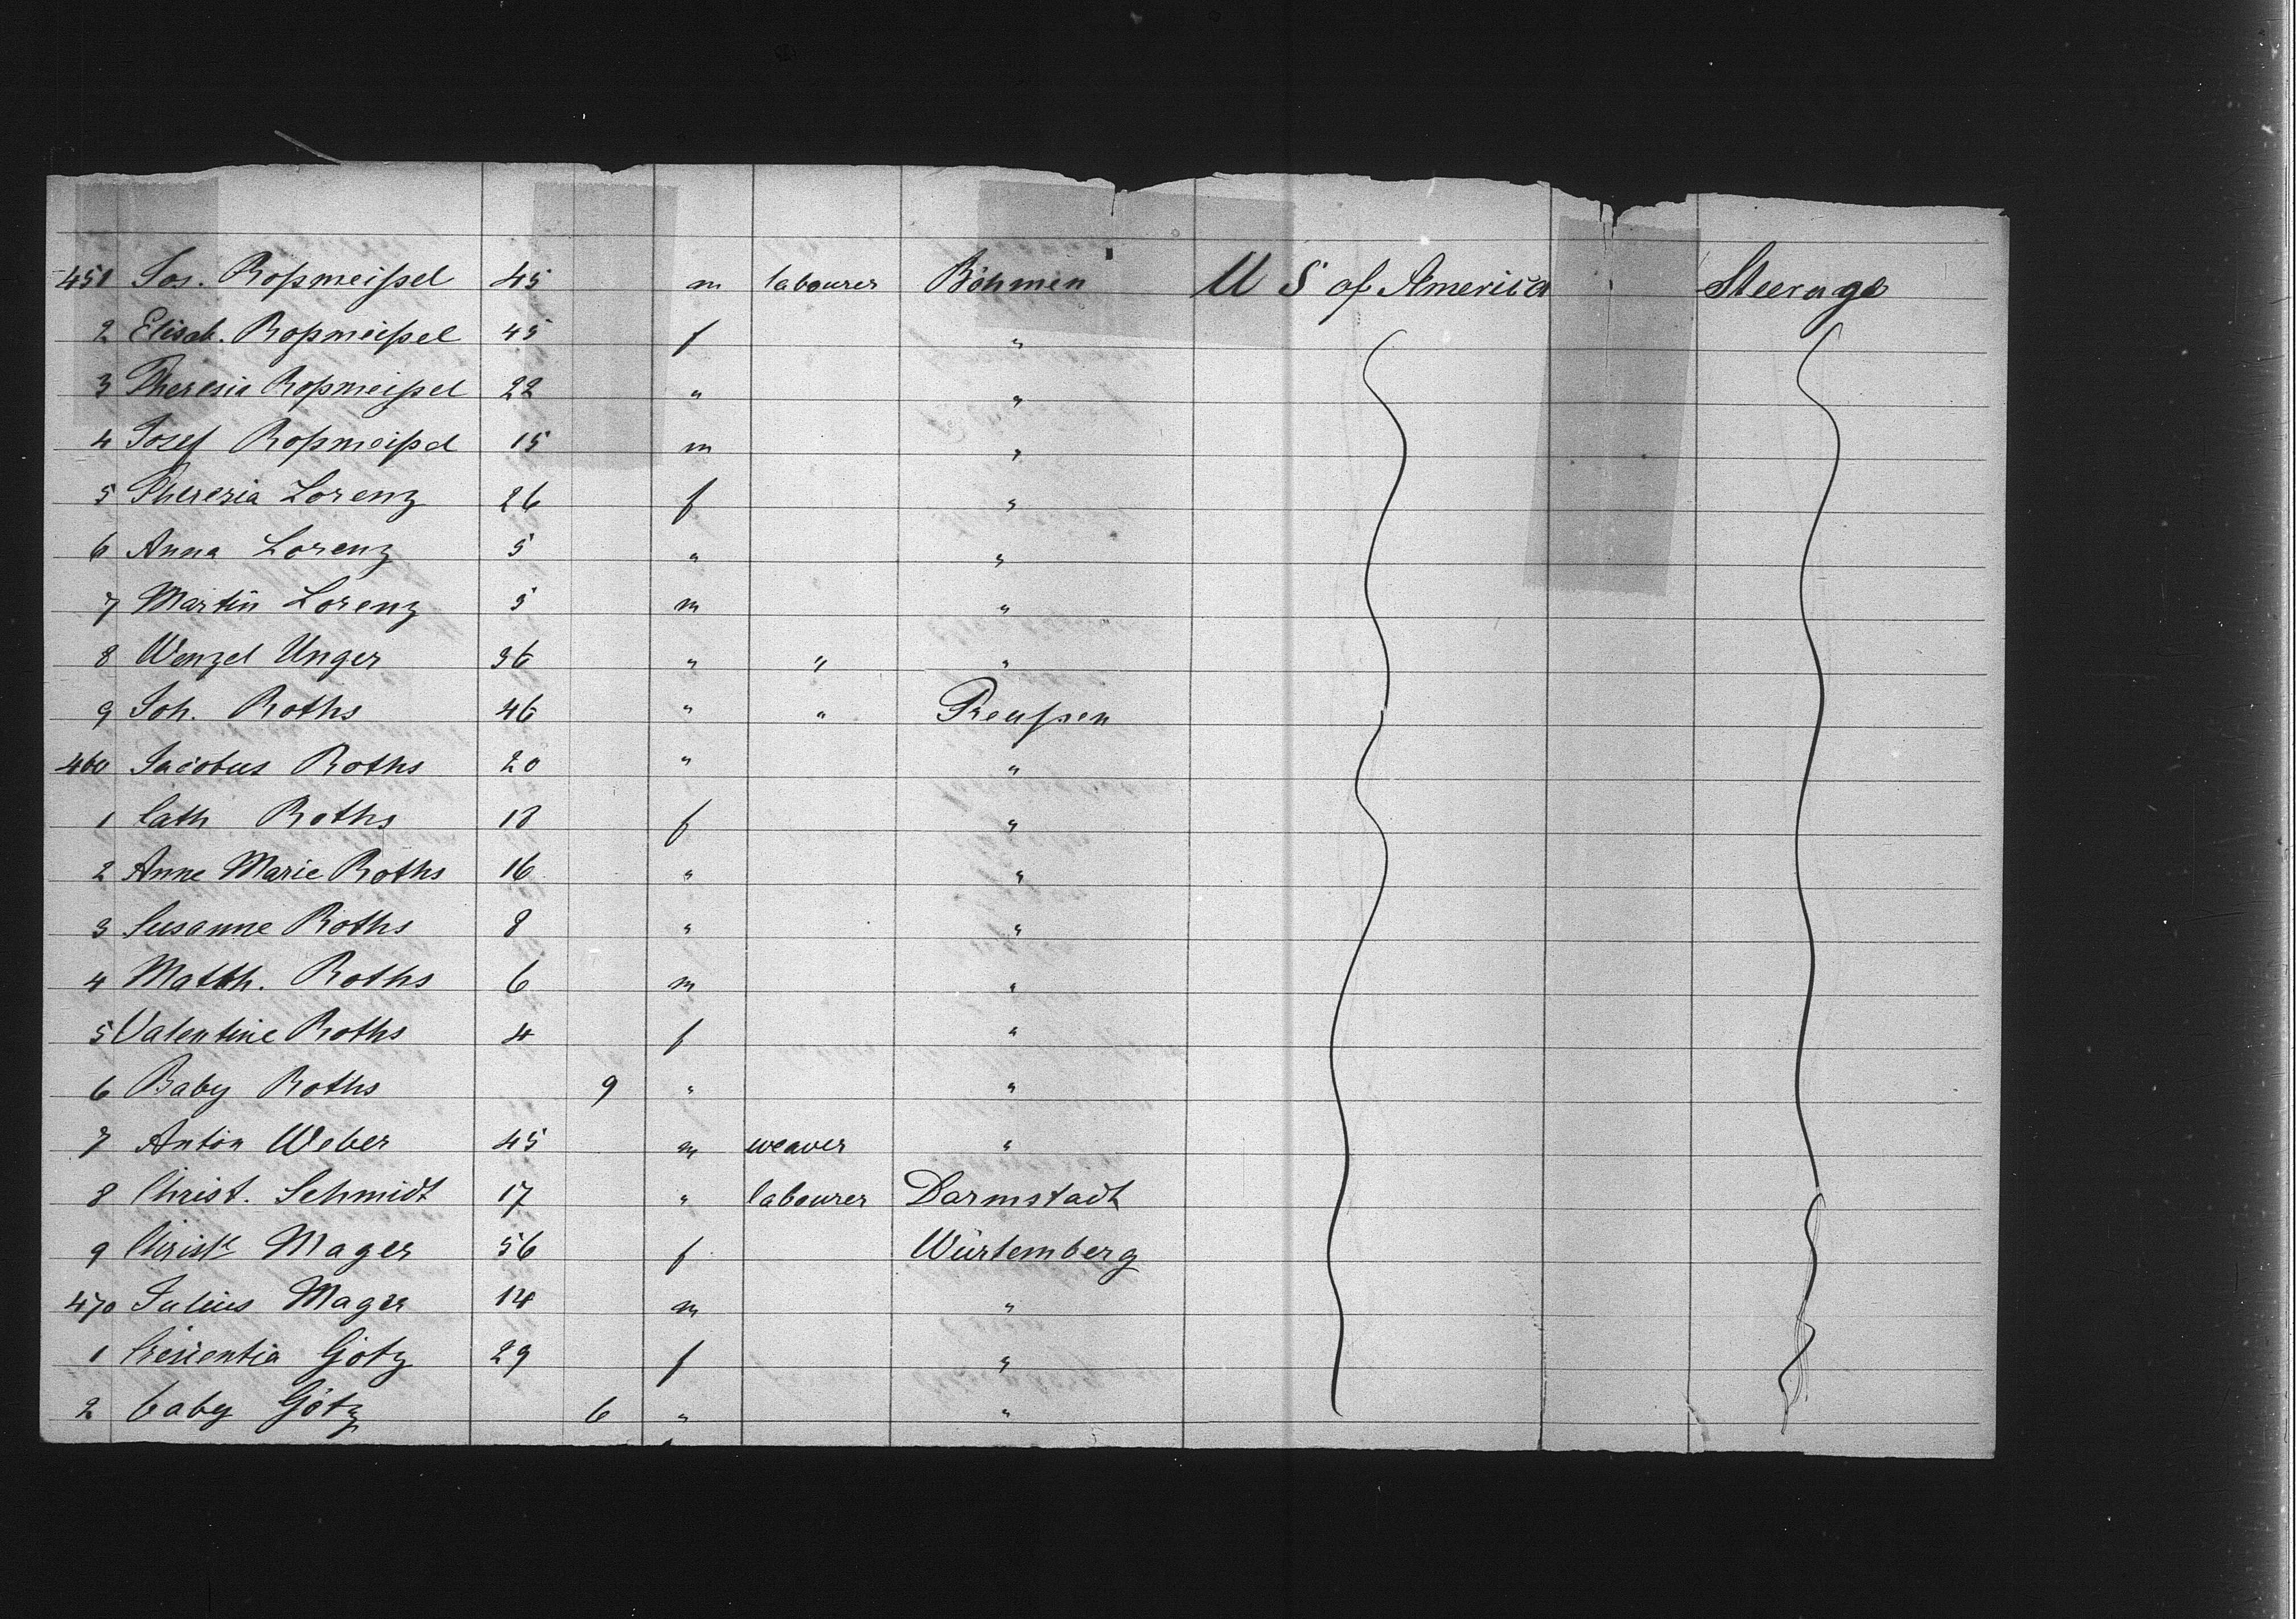 451 Jos. Roßmeißel 45 m labourer Böhmen U S of America Steerage
2 Elisab. Roßmeißel 45 f "
3 Theresia Roßmeißel 22 " "
4 Josef Roßmeißel 15 m "
5 Theresia Lorenz 26 f "
6 Anna Lorenz 5 " "
7 Martin Lorenz 5 m "
8 Wenzel Unger 36 " " "
9 Joh. Roths 46 " " Preußen
460 Jacobus Roths 20 " "
1 Cath Roths 18 f "
2 Anne Marie Roths 16 " "
3 Susanne Roths 8 " "
4 Matth. Roths 6 m "
5 Valentine Roths 4 f "
6 Baby Roths 9 " "
7 Anton Weber 45 m weaver "
8 Christ. Schmidt 17 " labourer Darmstadt
9 Mager 56 f Würtemberg
470 Julius Mager 14 m "
1 Crescentia Götz 29 f "
2 baby Götz 6 " "